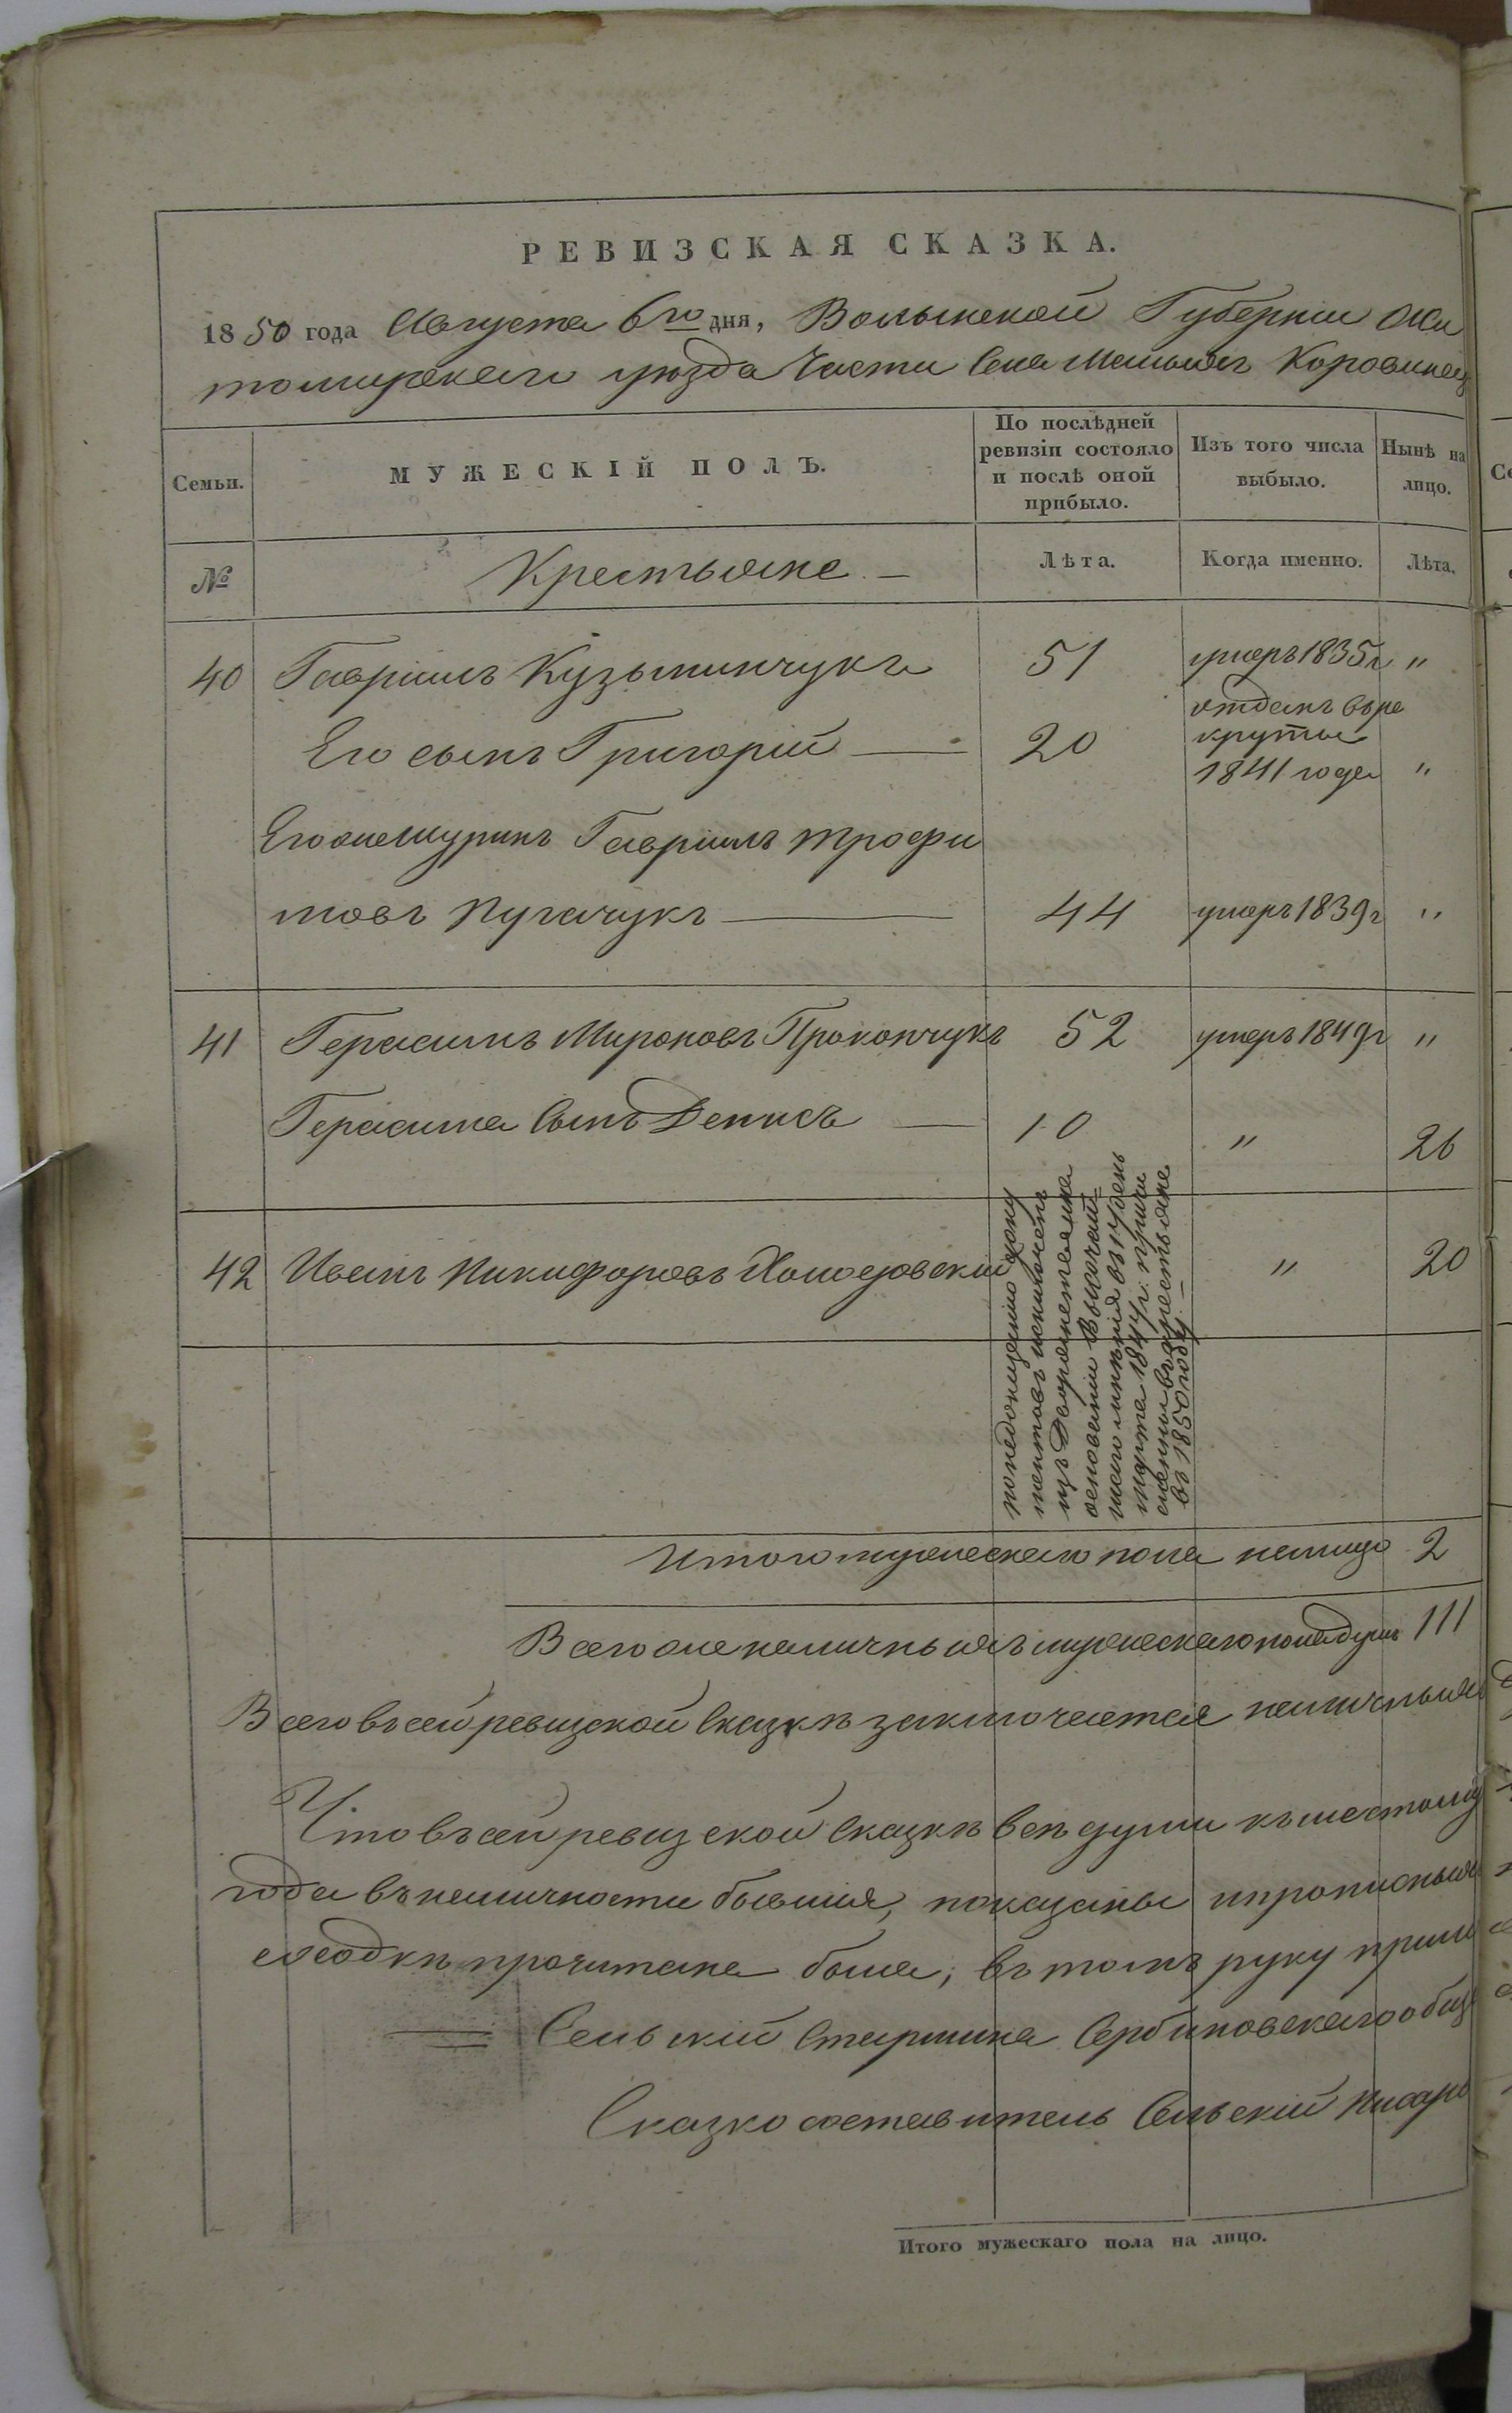 РЕВИЗСКАЯ СКАЗКА.
1850 года Августа 6го дня, Волынской Губерніи Жи
томирскаго уѣзда Части Села Малыхъ Коровинец
Семьи.
МУЖЕСКІЙ ПОЛЪ.
По послѣдней
ревизіи состояло
и послѣ оной
прибыло.
Изъ того числа
выбыло.
Нынѣ на
лицо.
№
Крестьяне.
Лѣта.
Когда именно.
Лѣта.
40 Гавріилъ Кузьминчукъ 51 умеръ 1835г "
Его сынъ Григорій — 20
отданъ въ ре
круты
1841 года "
Его шуринъ Гавріилъ Трофи
мовъ Пугачукъ — 44 умеръ 1839г "
41 Герасимъ Мироновъ Прокопчукъ 52 умеръ 1849г "
Герасима Сынъ Денисъ — 10 " 26
42 Иванъ Никифоровъ Холодовскій " 20
по недопущенію доку
ментовъ исключенъ
изъ Дворянства и на
основаніи Высочай
шаго мнѣнія въ 17 день
Марта 184 г. причи
сленъ въ крестьяне
въ 1850 году. —
Итого мужескаго пола налицо 2
Всего же наличныхъ мужескаго пола душъ 111
Всего въ сей ревизской Сказкѣ заключается наличныхъ
Что въ сей ревизской Сказкѣ всѣ души къ шестому
года въ наличности бывшія, показаны и прописныхъ
сходкѣ прочитана была; въ томъ руку прило
Сельскій Старшина Сербиновскаго общ
Сказкосоставитель Сельскій Писарь
Итого мужескаго пола на лицо.